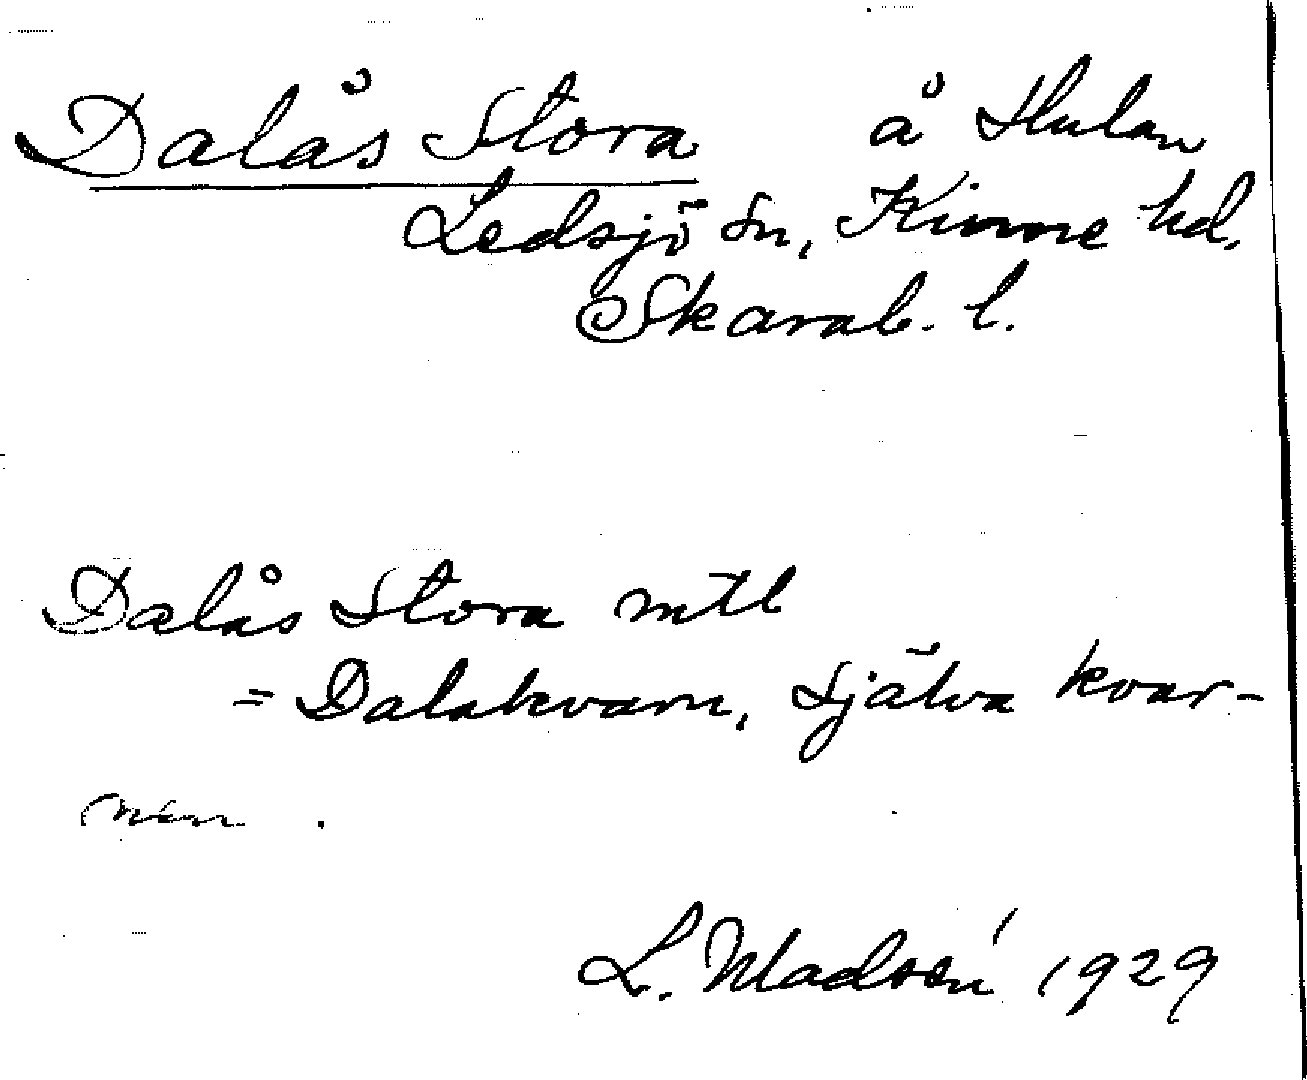 Dalås Stora å Hulan
Ledsjö sn, Kinne hd,
Skarab. l.
Dalås Stora mtl
= Dalakvarn, själva kvar-
nen.
L. Madsén 1929